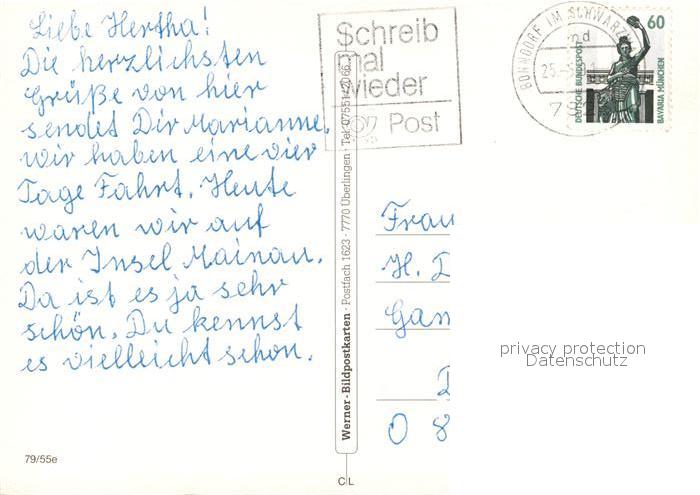 Liebe Hertha!
Die herzlichsten
Grüße von hier
sendet Dir Marianne,
wir haben eine vier
Tage Fahrt. Heute
waren wir auf
der Insel Mainau.
Da ist es ja sehr
schön. Du kennst
es vielleicht schon.
79/55e
Werner-Bildpostkarten · Postfach 1623 · 7770 Überlingen · Tel.
CL
Schreib
mal
wieder
Post
BONNDORF IM
60
DEUTSCHE BUNDESPOST
BAVARIA MÜNCHEN
Frau
H.
O 8
privacy protection
Datenschutz